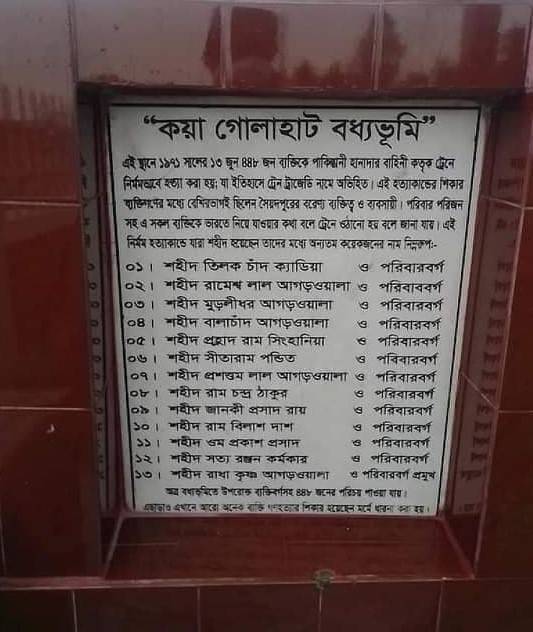 “কয়া গোলাহাট বধ্যভূমি”
এই স্থানে ১৯৭১ সালের ১৩ জুন ৪৪৮ জন ব্যক্তিকে পাকিস্তানী হানাদার বাহিনী কতৃক ট্রেনে
নির্মমভাবে হত্যা করা হয়; যা ইতিহাসে ট্রেন ট্রাজেডি নামে অভিহিত। এই হত্যাকান্ডের শিকার
ব্যক্তিগণের মধ্যে বেশিরভাগই ছিলেন সৈয়দপুরের বরেণ্য ব্যক্তিত্ব ও ব্যবসায়ী। পরিবার পরিজন
সহ এ সকল ব্যক্তিকে ভারতে নিয়ে যাওয়ার কথা বলে ট্রেনে ওঠানো হয় বলে জানা যায়। এই
নির্মম হত্যাকান্ডে যারা শহীদ হয়েছেন তাদের মধ্যে অন্যতম কয়েকজনের নাম নিম্নরূপ:-
০১। শহীদ তিলক চাঁদ ক্যাডিয়া ও পরিবারবর্গ
০২। শহীদ রামেশ্ব লাল আগড়ওয়ালা ও পরিবাববর্গ
০৩। শহীদ মুড়লীধর আগড়ওয়ালা ও পরিবারবর্গ
০৪। শহীদ বালাচাঁদ আগড়ওয়ালা ও পরিবারবর্গ
০৫। শহীদ প্রহ্লাদ রাম সিংহানিয়া ও পরিবারবর্গ
০৬। শহীদ সীতারাম পন্ডিত ও পরিবারবর্গ
০৭। শহীদ প্রশত্তম লাল আগড়ওয়ালা ও পরিবারবর্গ
০৮। শহীদ রাম চন্দ্র ঠাকুর ও পরিবারবর্গ
০৯। শহীদ জানকী প্রসাদ রায় ও পরিবারবর্গ
১০। শহীদ রাম বিলাশ দাশ ও পরিবারবর্গ
১১। শহীদ ওম প্রকাশ প্রসাদ ও পরিবারবর্গ
১২। শহীদ সত্য রঞ্জন কর্মকার ও পরিবারবর্গ
১৩। শহীদ রাধা কৃষ্ণ আগড়ওয়ালা ও পরিবারবর্গ প্রমুখ
অত্র বধ্যভূমিতে উপরোক্ত ব্যক্তিবর্গসহ ৪৪৮ জনের পরিচয় পাওয়া যায়।
এছাড়াও এখানে আরো অনেক ব্যক্তি গণহত্যার শিকার হয়েছেন মর্মে ধারনা করা হয়।